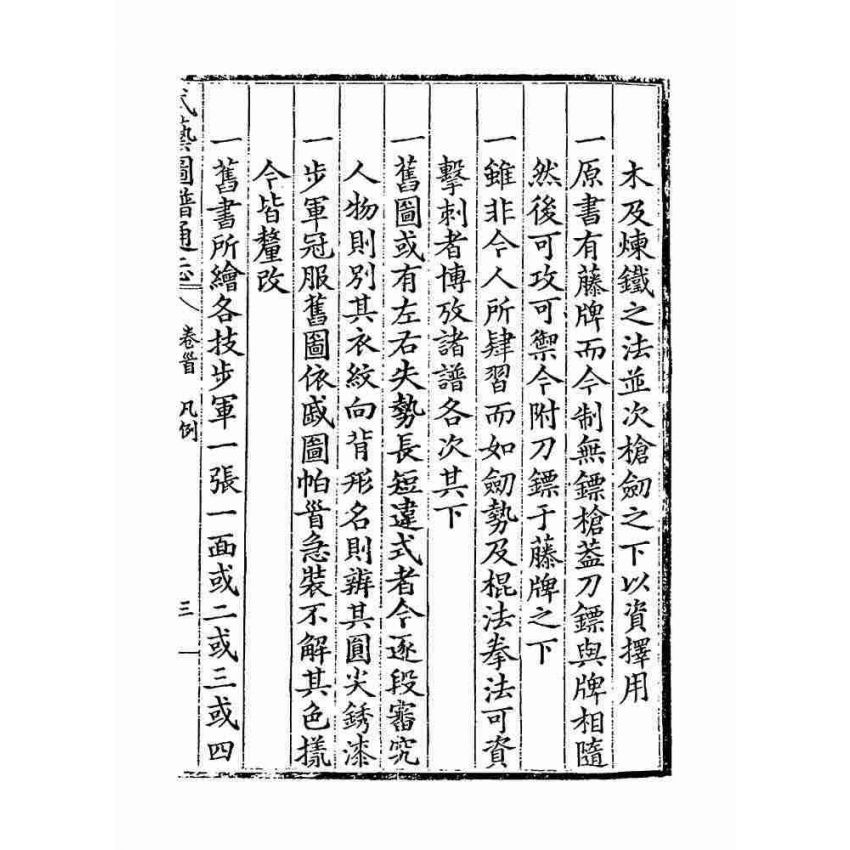 木及煉鐵之法並次槍劒之下以資擇用
一原書有藤牌而今制無鏢槍葢刀鏢與牌相隨
然後可攻可禦今附刀鏢于藤牌之下
一雖非今人所肄習而如劒勢及棍法拳法可資
擊刺者博攷諸譜各次其下
一舊圖或有左右失勢長短違式者今逐段審究
人物則別其衣紋向背形名則辨其圓尖銹漆
一步軍冠服舊圖依戚圖帕首急裝不解其色㨾
今皆釐改
一舊書所繪各技步軍一張一面或二或三或四
武藝圖譜通志 卷首 凡例 三